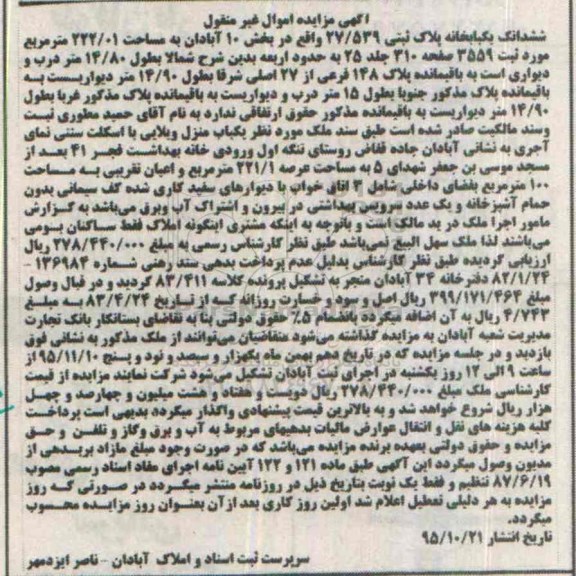 آگهی مزایده اموال غیر منقول
ششدانگ یکبابخانه پلاک ثبتی ۲۷/۵۳۹ واقع در بخش ۱۰ آبادان به مساحت ۲۲۲/۰۱ مترمربع
مورد ثبت ۳۵۵۹ صفحه ۳۱۰ جلد ۲۵ به حدود اربعه بدین شرح شمالا بطول ۱۴/۸۰ متر درب و
دیواری است به باقیمانده پلاک ۱۴۸ فرعی از ۲۷ اصلی شرقا بطول ۱۴/۹۰ متر دیواریست به
باقیمانده پلاک مذکور جنوبا بطول ۱۵ متر درب و دیواریست به باقیمانده پلاک مذکور غربا بطول
۱۴/۹۰ متر دیواریست به باقیمانده مذکور حقوق ارتفاقی ندارد به نام آقای حمید مطوری ثبت
وسند مالکیت صادر شده است طبق سند ملک مورد نظر یکباب منزل ویلایی با اسکلت سنتی نمای
آجری به نشانی آبادان جاده قفاص روستای تنگه اول ورودی خانه بهداشت فجر ۴۱ بعد از
مسجد موسی بن جعفر شهدای ۵ به مساحت عرصه ۲۲۱/۱ مترمربع و اعیان تقریبی به مساحت
۱۰۰ مترمربع بفضای داخلی شامل ۳ اتاق خواب با دیوارهای سفید کاری شده کف سیمانی بدون
حمام آشپزخانه و یک عدد سرویس بهداشتی در بیرون و اشتراک آب وبرق می‌باشد به گزارش
مامور اجرا ملک در ید مالک است و باتوجه به اینکه مشتری اینگونه املاک فقط ساکنان بومی
می‌باشند لذا ملک سهل البیع نمی‌باشد طبق نظر کارشناس رسمی به مبلغ ۲۷۸/۴۴۰/۰۰۰ ریال
ارزیابی گردیده طبق نظر کارشناس بدلیل عدم پرداخت بدهی سند رهنی شماره ۱۳۶۹۸۴ -
۸۲/۱/۲۴ دفترخانه ۳۴ آبادان منجر به تشکیل پرونده کلاسه ۸۳/۴۱۱ گردید و در قبال وصول
مبلغ ۳۹۹/۱۷۱/۴۶۴ ریال اصل و سود و خسارت روزانه که از تاریخ ۸۳/۴/۲۴ به مبلغ
۴/۷۴۳ ریال به آن اضافه میگردد بانضمام ۵٪ حقوق دولتی بنا به تقاضای بستانکار بانک تجارت
مدیریت شعبه آبادان به مزایده گذاشته می‌شود متقاضیان می‌توانند از ملک مذکور به نشانی فوق
بازدید و در جلسه مزایده که در تاریخ دهم بهمن ماه یکهزار و سیصد و نود و پنج ۹۵/۱۱/۱۰ از
ساعت ۹ الی ۱۲ روز یکشنبه در اجرای ثبت آبادان تشکیل می‌شود شرکت نمایند مزایده از قیمت
کارشناسی ملک مبلغ ۲۷۸/۴۴۰/۰۰۰ ریال دویست و هفتاد و هشت میلیون و چهارصد و چهل
هزار ریال شروع خواهد شد و به بالاترین قیمت پیشنهادی واگذار میگردد بدیهی است پرداخت
کلیه هزینه های نقل و انتقال عوارض مالیات بدهیهای مربوط به آب و برق وگاز و تلفن و حق
مزایده و حقوق دولتی بعهده برنده مزایده می‌باشد که در صورت وجود مبلغ مازاد بربدهی از
مدیون وصول میگردد این آگهی طبق ماده ۱۲۱ و ۱۲۲ آیین نامه اجرای مفاد اسناد رسمی مصوب
۸۷/۶/۱۹ تنظیم و فقط یک نوبت بتاریخ ذیل در روزنامه منتشر میگردد در صورتی که روز
مزایده به هر دلیلی تعطیل اعلام شد اولین روز کاری بعد ازآن بعنوان روز مزایده محسوب
میگردد.
تاریخ انتشار ۹۵/۱۰/۲۱
سرپرست ثبت اسناد و املاک آبادان - ناصر ایزدمهر